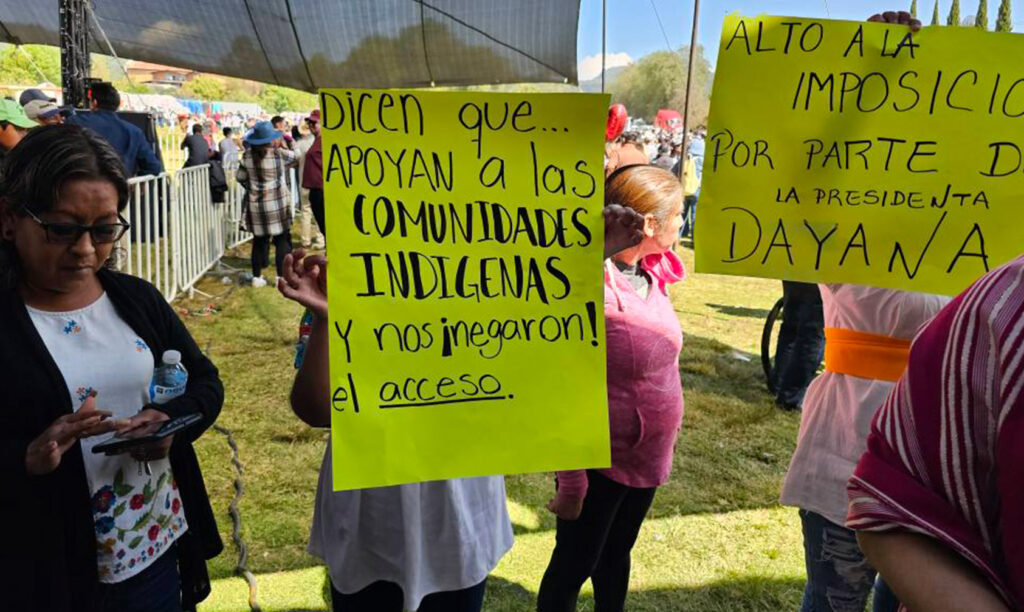 Dicen que...
APOYAN a las
COMUNIDADES
INDIGENAS
y nos ¡negaron!
el acceso.
ALTO A LA
IMPOSICIO
POR PARTE D
LA PRESIDENTA
DAYANA